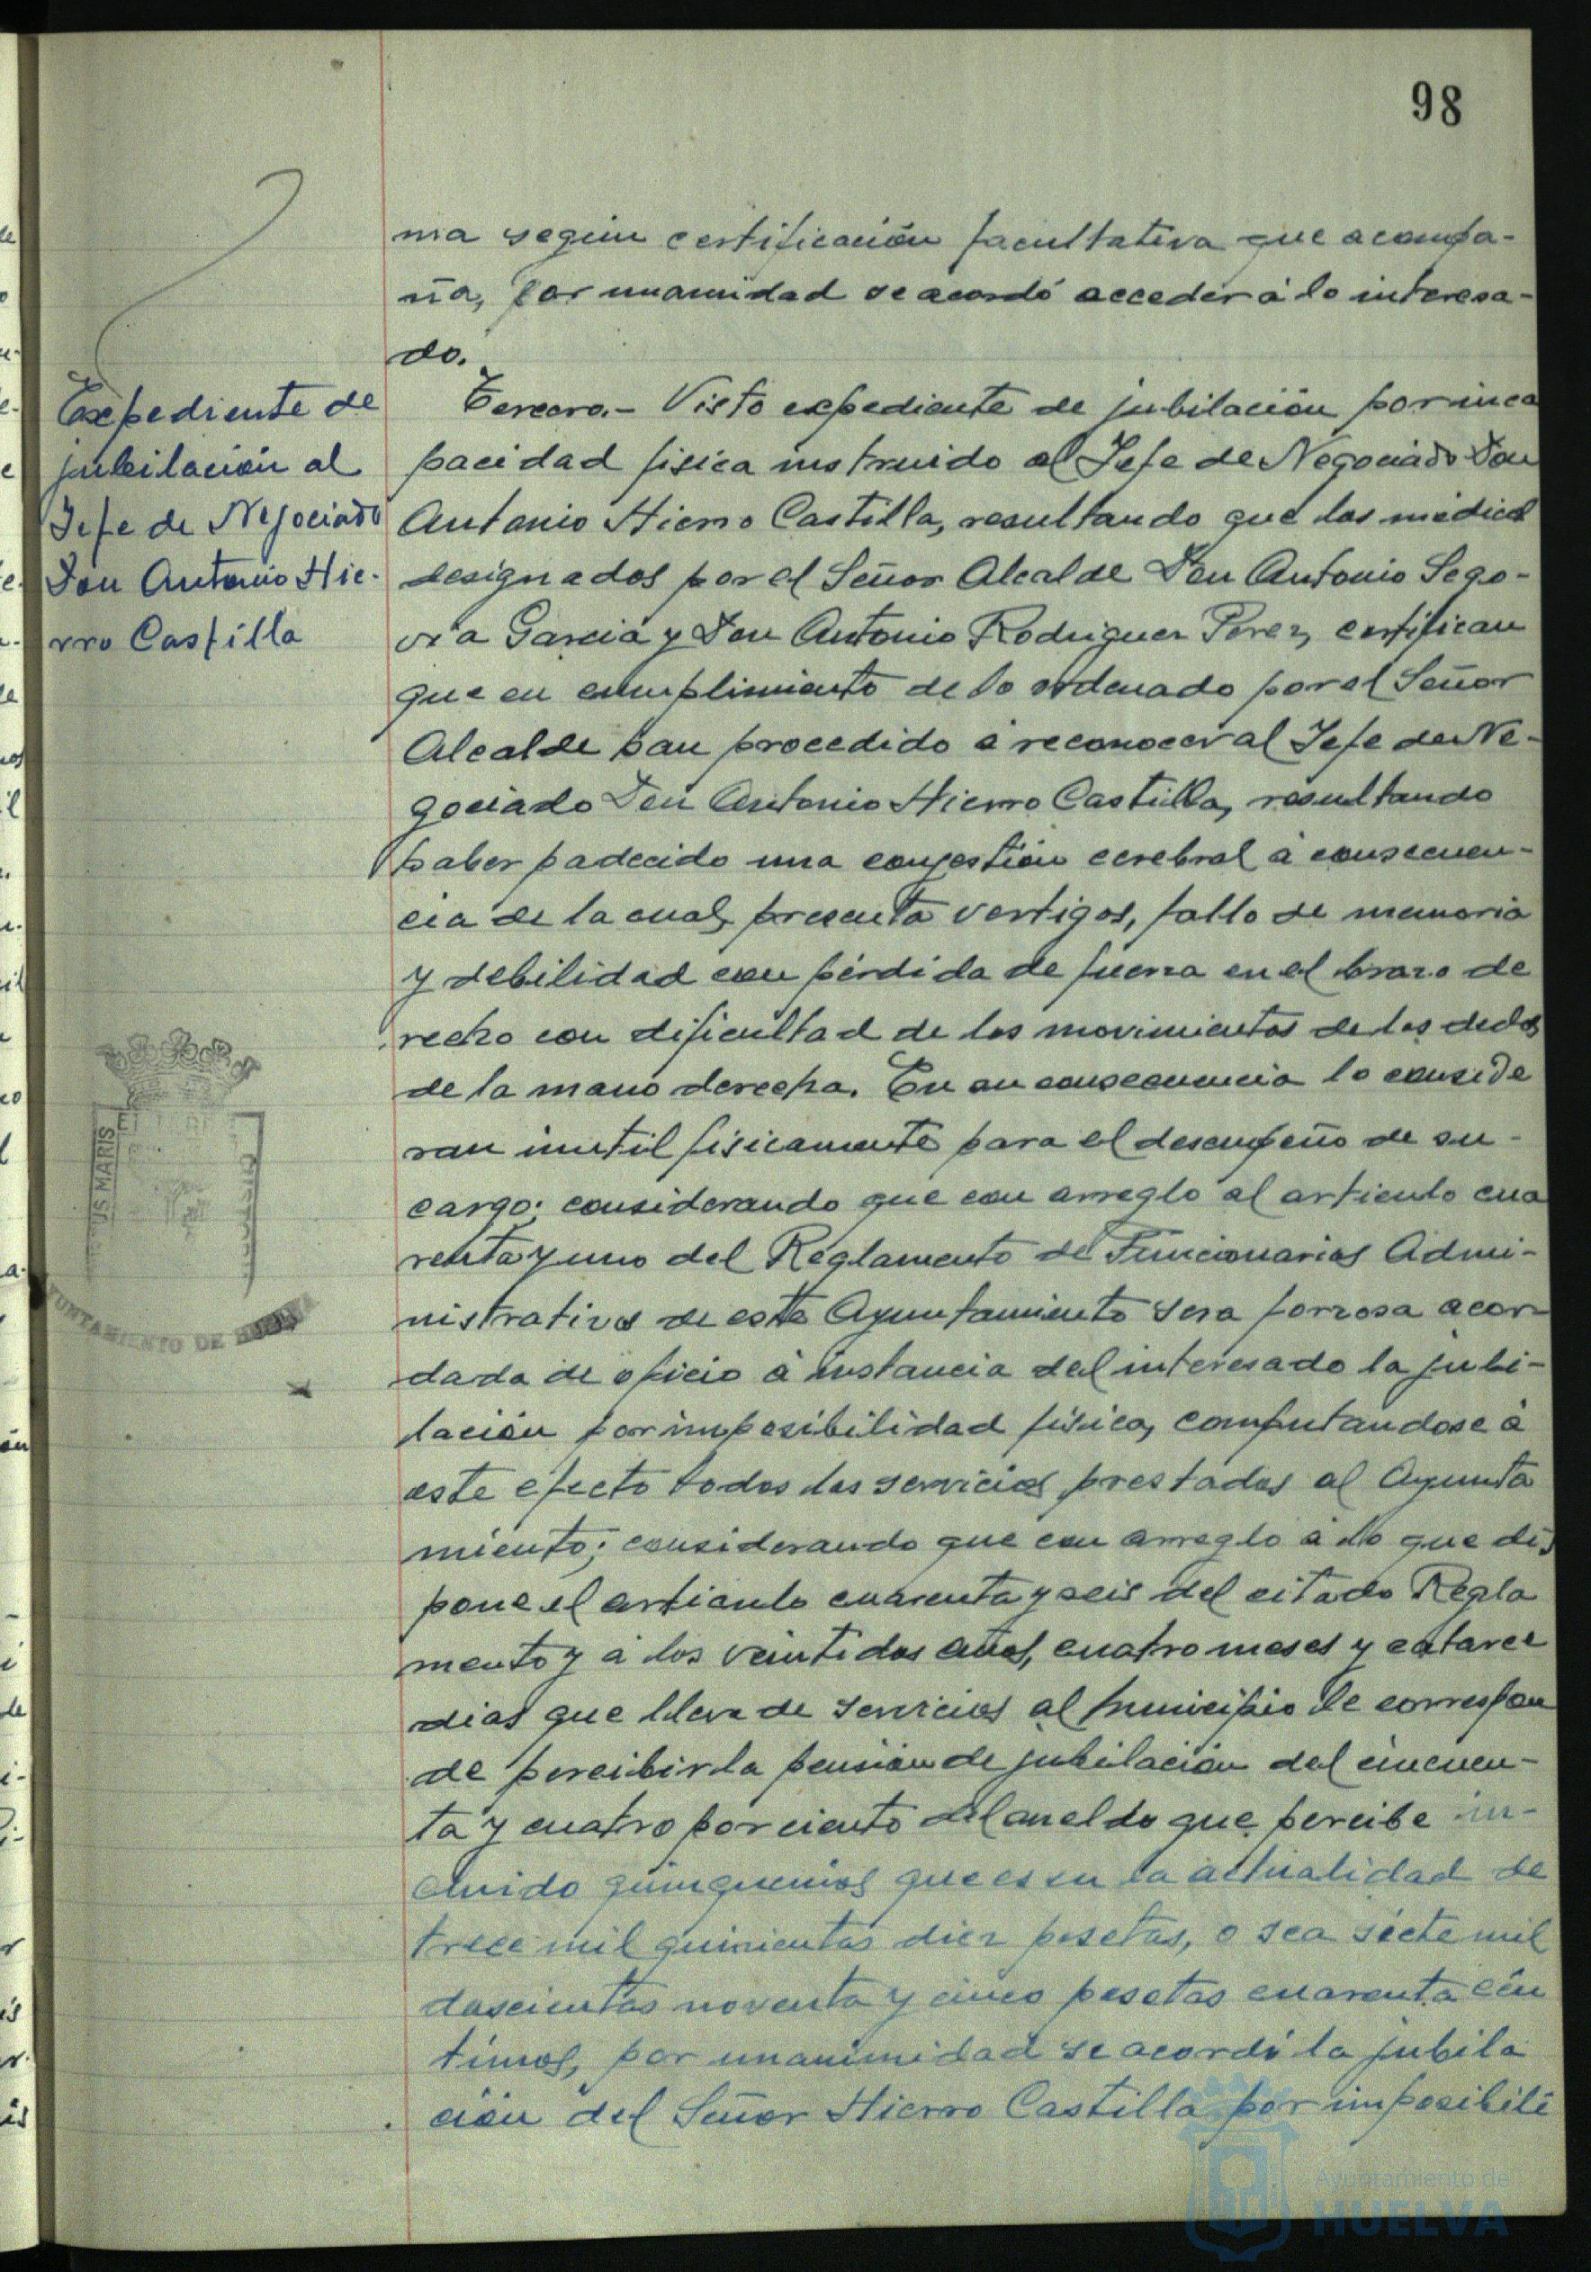 98
ma según certificación facultativa que acompa-
ña, por unanimidad se acordó acceder á lo interesa-
do.
Expediente de
jubilación al
Jefe de Negociado
Don Antonio Hie-
rro Castilla
Tercero.- Visto expediente de jubilación por inca
pacidad física instruido al Jefe de Negociado Don
Antonio Hierro Castilla, resultando que los médicos
designados por el Señor Alcalde Don Antonio Sego-
via Garcia y Don Antonio Rodriguez Perez, certifican
que en cumplimiento de lo ordenado por el Señor
Alcalde han procedido á reconocer al Jefe de Ne-
gociado Don Antonio Hierro Castilla, resultando
haber padecido una congestión cerebral á consecuen-
cia de la cual, presenta vertigos, fallo de memoria
y debilidad con pérdida de fuerza en el brazo de
recho con dificultad de los movimientos de los dedos
de la mano derecha. En su consecuencia lo conside
ran inutil fisicamente para el desempeño de su
cargo; considerando que con arreglo al articulo cua
renta y uno del Reglamento de Funcionarios Admi-
nistrativos de este Ayuntamiento sera forzosa acor
dada de oficio á instancia del interesado la jubi-
lación por imposibilidad física, computandose á
este efecto todos los servicios prestados al Ayunta
miento; considerando que con arreglo á lo que dis
pone el articulo cuarenta y seis del citado Regla
mento y á los veintidos años, cuatro meses y catorce
dias que lleva de servicios al Municipio le correspon
de percibir la pensión de jubilación del cincuen-
ta y cuatro por ciento del sueldo que percibe in-
cluido quinquenios que es en la actualidad de
trece mil quinientas diez pesetas, o sea siete mil
doscientas noventa y cinco pesetas cuarenta cén
timos, por unanimidad se acordó la jubila
ción del Señor Hierro Castilla por imposibili
US MARIS
AYUNTAMIENTO DE HUELVA
Ayuntamiento de
HUELVA